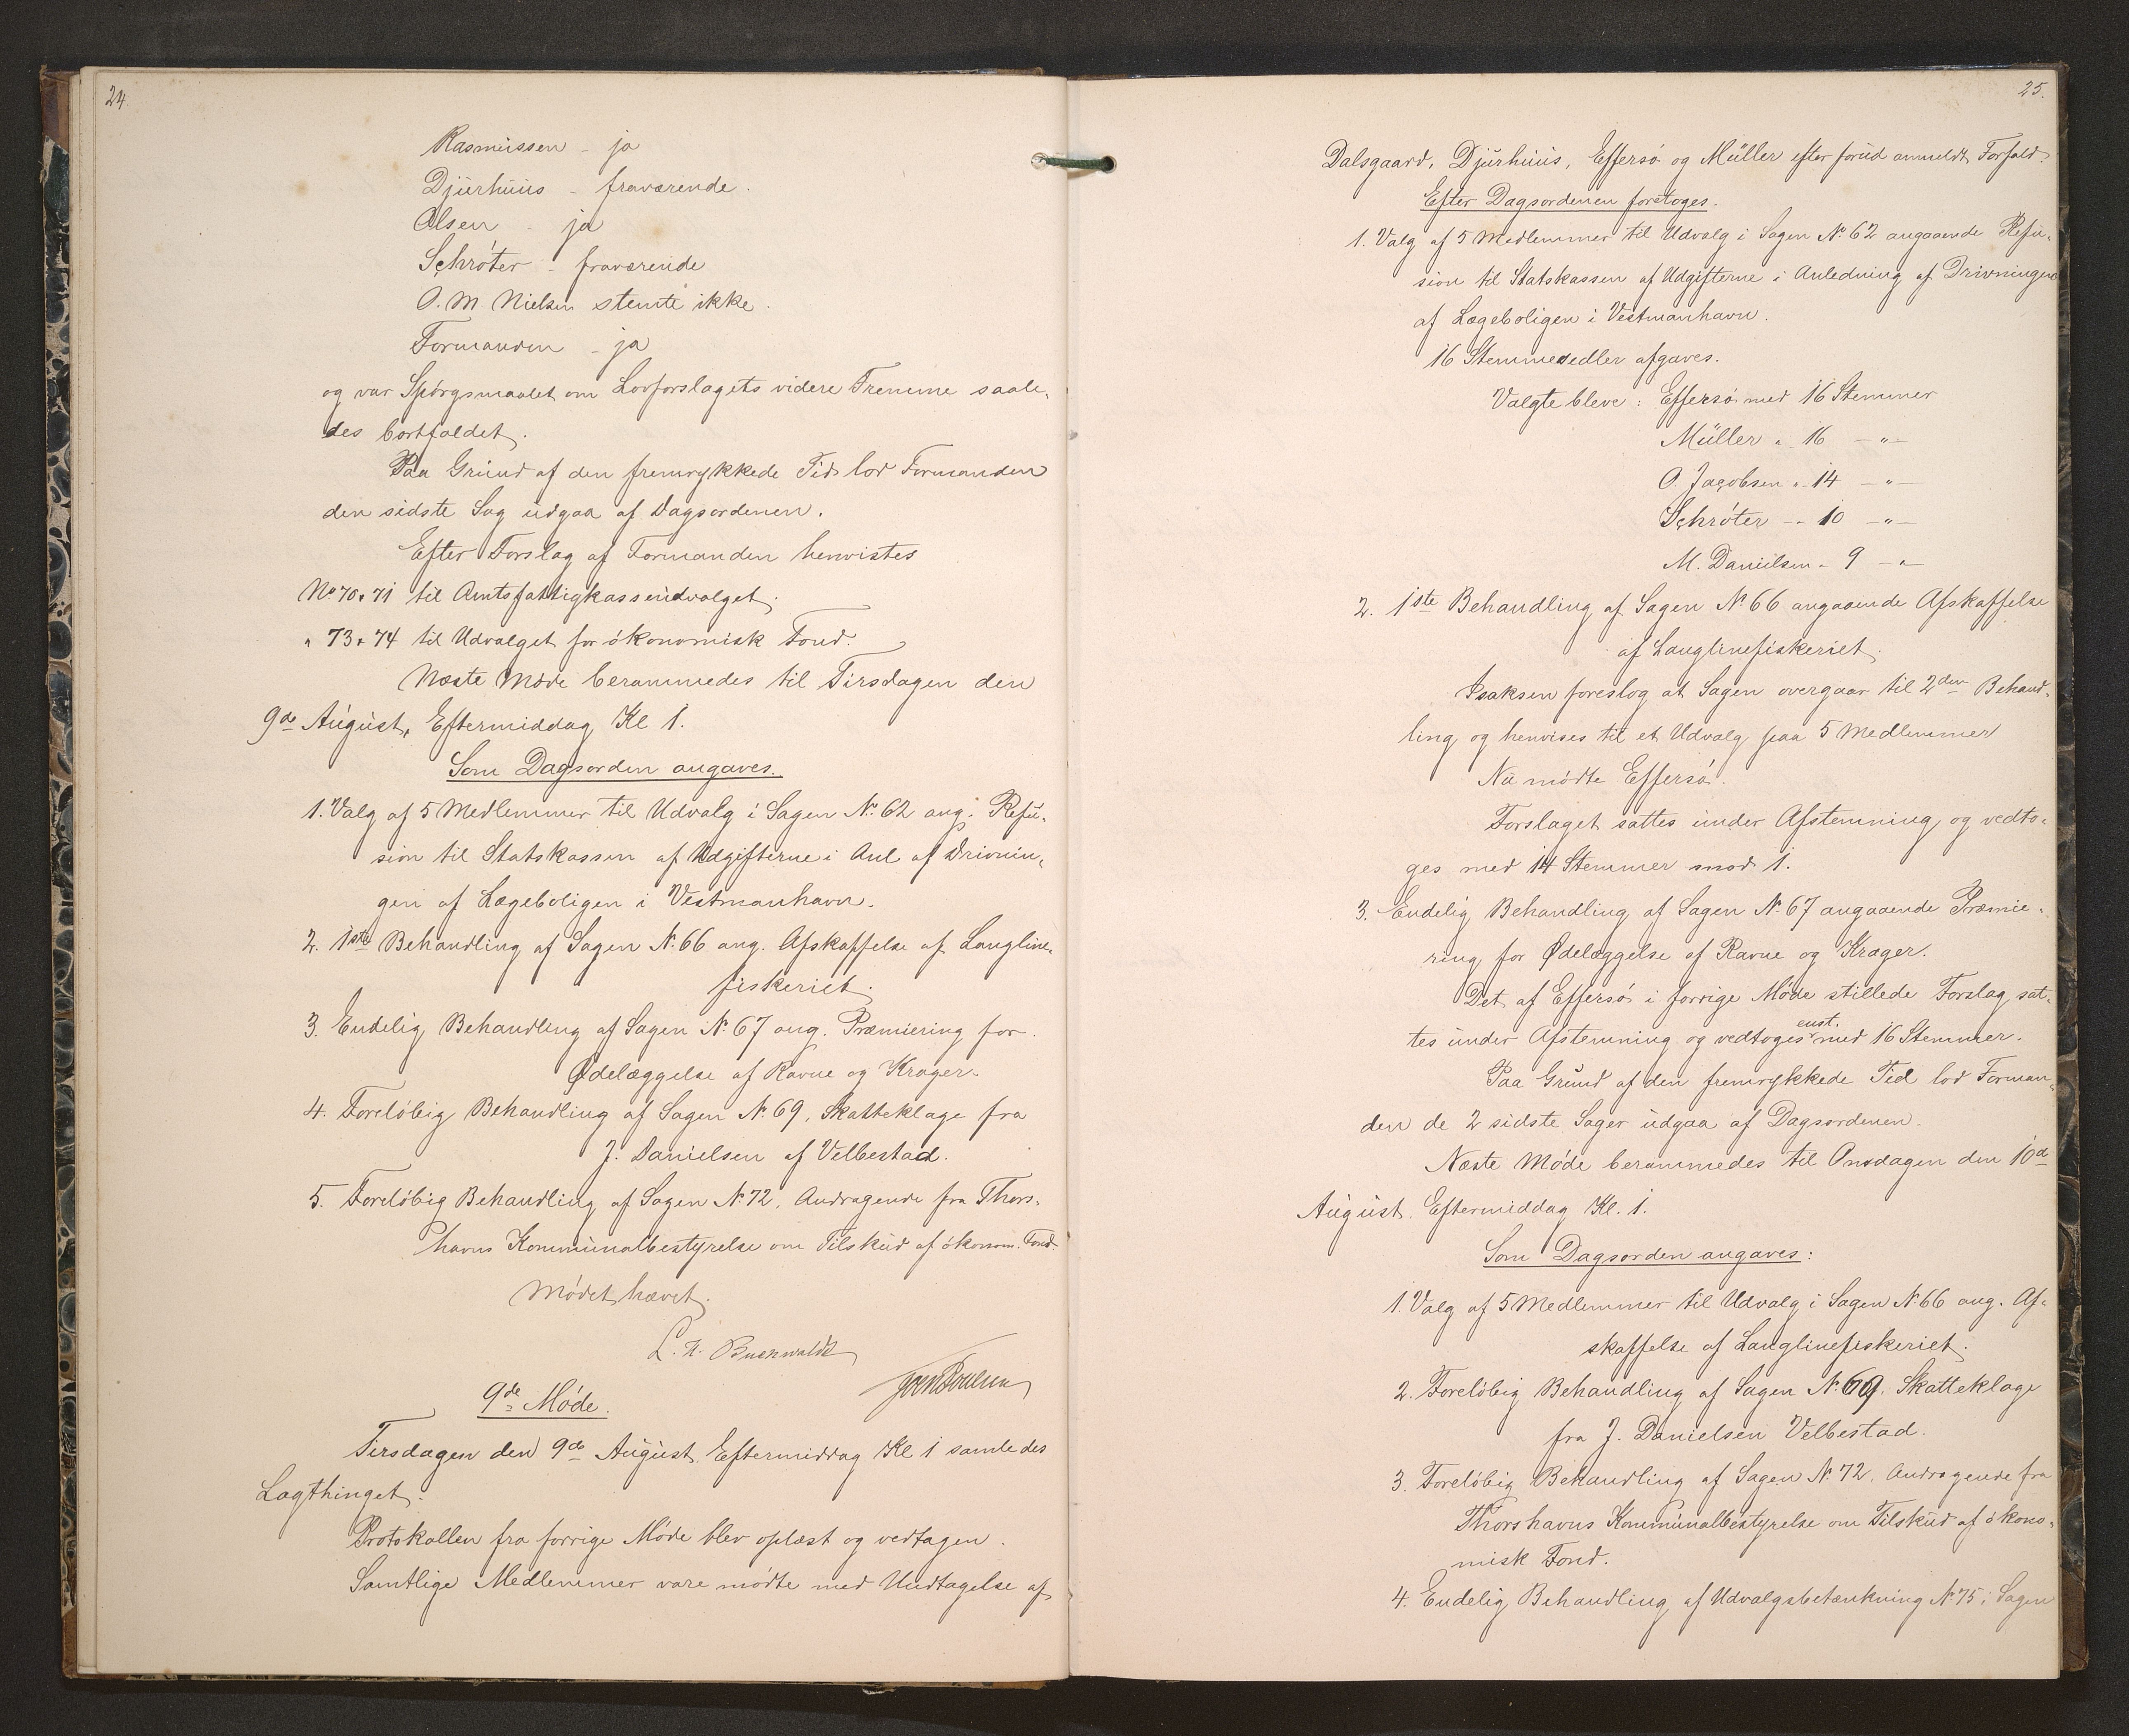 24.
Rasmussen - ja
Djurhuus - fraværende.
Olsen - ja
Schrøter - fraværende
O. M. Nielsen stemte ikke.
Formanden - ja
og var Spørgsmaalet om Lovforslagets videre Fremme saale-
des bortfaldet.
Paa Grund af den fremrykkede Tid lod Formanden
den sidste Sag udgaa af Dagsordenen.
Efter Forslag af Formanden henvistes
No 70 & 71 til Amtsfattigkasseudvalget.
" 73 & 74 til Udvalget for økonomisk Fond.
Næste Møde berammedes til Tirsdagen den
9de August, Eftermiddag Kl 1.
Som Dagsorden angaves.
1. Valg af 5 Medlemmer til Udvalg i Sagen No. 62 ang. Refu-
sion til Statskassen af Udgifterne i Anl. af Drivnin-
gen af Lægeboligen i Vestmanhavn.
2. 1ste Behandling af Sagen No. 66 ang. Afskaffelse af Langline-
fiskeriet.
3. Endelig Behandling af Sagen No. 67 ang. Præmiering for
Ødelæggelse af Ravne og Krager.
4. Foreløbig Behandling af Sagen No. 69, Skatteklage fra
J. Danielsen af Velbestad.
5. Foreløbig Behandling af Sagen No. 72, Andragende fra Thors-
havns Kommunalbestyrelse om Tilskud af økonom. Fond.
Mødet hævet.
L. H. Buchwaldt
Joen Poulsen
9de Møde.
Tirsdagen den 9de August Eftermiddag Kl 1 samledes
Lagthinget.
Protokollen fra forrige Møde blev oplæst og vedtagen.
Samtlige Medlemmer vare mødte med Undtagelse af
25.
Dalsgaard, Djurhuus, Effersø og Müller efter forud anmeldt Forfald.
Efter Dagsordenen foretoges.
1. Valg af 5 Medlemmer til Udvalg i Sagen No. 62 angaaende Refu-
sion til Statskassen af Udgifterne i Anledning af Drivningen
af Lægeboligen i Vestmanhavn.
16 Stemmesedler afgaves.
Valgte bleve: Effersø med 16 Stemmer
Müller " 16 -"-
O. Jacobsen " 14 -"-
Schrøter -"- 10 -"-
M. Danielsen - 9 -"-
2. 1ste Behandling af Sagen No. 66 angaaende Afskaffelse
af Langlinefiskeriet.
Isaksen foreslog at Sagen overgaar til 2den Behand-
ling og henvises til et Udvalg paa 5 Medlemmer
Nu mødte Effersø.
Forslaget sattes under Afstemning og vedto-
ges med 14 Stemmer mod 1.
3. Endelig Behandling af Sagen No. 67 angaaende Præmie-
ring for Ødelæggelse af Ravne og Krager.
Det af Effersø i forrige Møde stillede Forslag sat-
tes under Afstemning og vedtoges enst. med 16 Stemmer.
Paa Grund af den fremrykkede Tid lod Forman-
den de 2 sidste Sager udgaa af Dagsordenen.
Næste Møde berammedes til Onsdagen den 10de
August. Eftermiddag Kl. 1.
Som Dagsorden angaves:
1. Valg af 5 Medlemmer til Udvalg i Sagen No. 66 ang. Af-
skaffelse af Langlinefiskeriet.
2. Foreløbig Behandling af Sagen No. 69. Skatteklage
fra J. Danielsen Velbestad.
3. Foreløbig Behandling af Sagen No. 72. Andragende fra
Thorshavns Kommunalbestyrelse om Tilskud af økono-
misk Fond.
4. Endelig Behandling af Udvalgsbetænkning No. 75 i Sagen